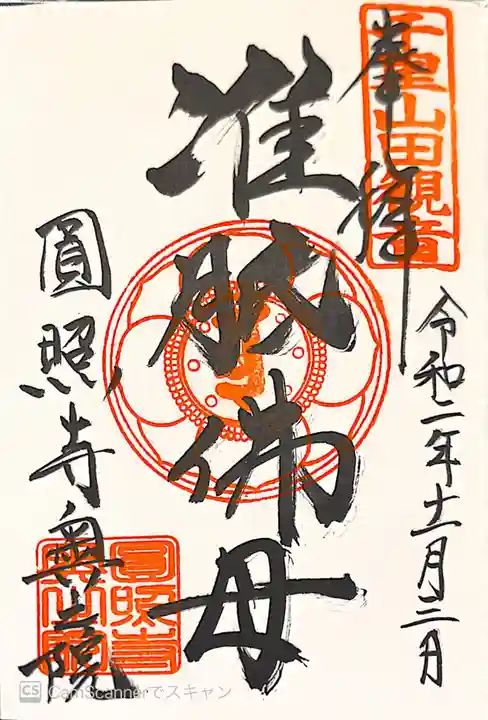 奉拝
子聖山田観音
令和二年十一月三日
准胝佛母
圓照寺奥山蔵
圓照寺
CS CamScannerでスキャン